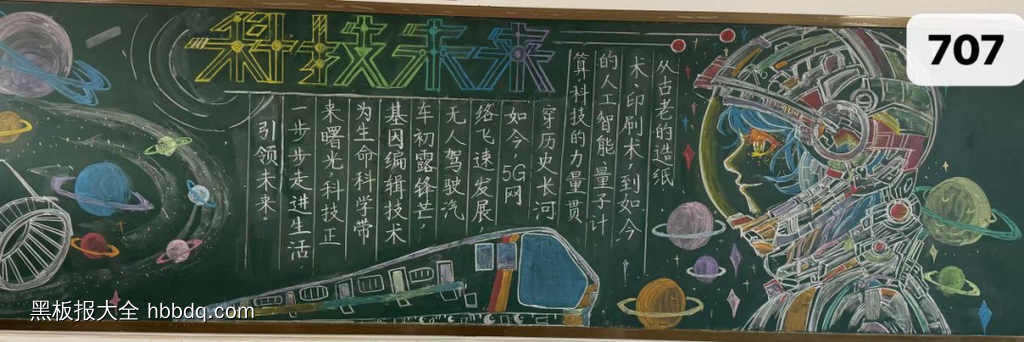 707
科技未来
从古老的造纸
术、印刷术,到如今
的人工智能、量子计
算,科技的力量贯
穿历史长河
如今,5G网
络飞速发展,
无人驾驶汽
车初露锋芒,
基因编辑技术
为生命科学带
来曙光,科技正
一步步走进生活,
引领未来.
黑板报大全 hbbdq.com